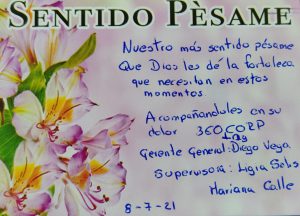 SENTIDO PÈSAME
Nuestro más sentido pésame
Que Dios les dé la fortaleza
que necesitan en estos
momentos.
Acompañandoles en su
dolor 360 CORP
Gerente General: Diego Vega
Supervisora: Ligia Solis
Mariana Calle
8-7-21